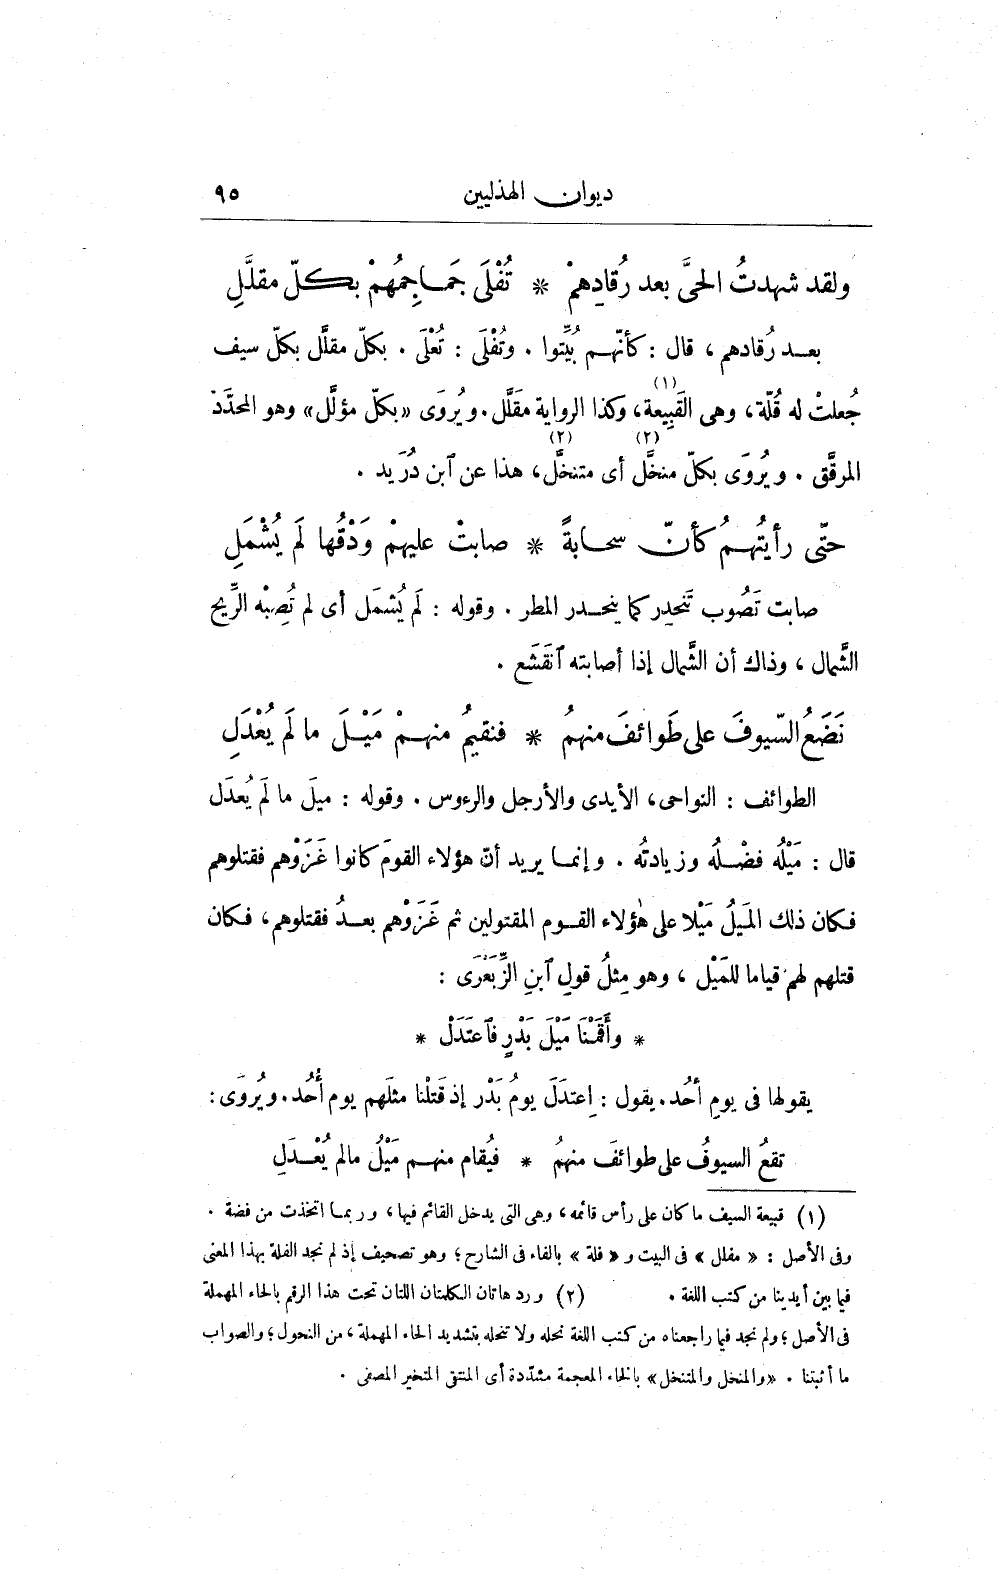 ديوان الهذليين ٩٥
ولقد شهدتُ الحىَّ بعد رُقادِهمْ * تُفْلَى جَماجِمُهمْ بكلّ مقلَّلِ
بعد رُقادهم، قال : كأنّهم بُيِّتوا . وتُفْلَى : تُعْلَى . بكلّ مقلَّل بكلّ سيف
جُعلتْ له قُلّة، وهى القَبِيعة(١)، وكذا الرواية مقَلَّل. ويُروَى «بكلّ مؤلَّل» وهو المحدَّد
المرقَّق . ويُروَى بكلّ منخَّل(٢) أى متنخَّل(٢)، هذا عن ٱبن دُرَيد .
حتّى رأيتُهمُ كأنّ سحابةً * صابتْ عليهمْ وَدْقُها لَم يُشْمَلِ
صابت تَصُوب تَنحدِر كما ينحدر المطر . وقوله : لَم يُشمَل أى لم تُصِبْه الرِّيح
الشَّمال ، وذاك أن الشَّمال إذا أصابته ٱنقَشَع .
نَضَعُ السّيوفَ على طَوائفَ منهمُ * فنقيمُ منهمْ مَيْلَ ما لَم يُعْدَلِ
الطوائف : النواحى، الأيدى والأرجل والرءوس . وقوله : ميلَ ما لَم يُعدَل
قال : مَيْلُه فضْلُه وزيادتُه . وإنما يريد أنّ هؤلاء القومَ كانوا غَزَوْهم فقتلوهم
فكان ذلك المَيلُ مَيْلا على هٰؤلاء القوم المقتولين ثم غَزَوْهم بعدُ فقتلوهم، فكان
قتلهم لهم قياما للمَيْل ، وهو مِثلُ قولِ ٱبنِ الزِّبَعْرَى :
* وأَقَمْنَا مَيْلَ بَدْرٍ فٱعتَدَلْ *
يقولها فى يومِ أُحُد. يقول : اِعتدَلَ يومُ بَدْر إذ قَتَلْنا مثلَهم يوم أُحُد. ويُروَى :
تقعُ السيوفُ على طوائفَ منهمُ * فيُقام منهم مَيْلُ مالم يُعْدَلِ
(١) قبيعة السيف ما كان على رأس قائمه، وهى التى يدخل القائم فيها، وربما اتخذت من فضة .
وفى الأصل : « مفلل » فى البيت و « فلة » بالفاء فى الشارح؛ وهو تصحيف إذ لم نجد الفلة بهذا المعنى
فيما بين أيدينا من كتب اللغة . (٢) ورد هاتان الكلمتان اللتان تحت هذا الرقم بالحاء المهملة
فى الأصل؛ ولم نجد فيما راجعناه من كتب اللغة نحله ولا تنحله بتشديد الحاء المهملة، من النحول؛ والصواب
ما أثبتنا . «والمنخل والمتنخل» بالخاء المعجمة مشدّدة أى المنتقى المتخير المصفى .